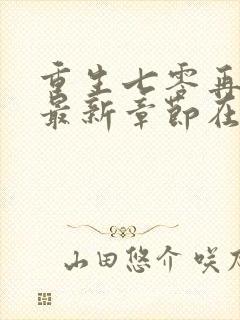 重生七零再
最新章节在
山田悠介 咲